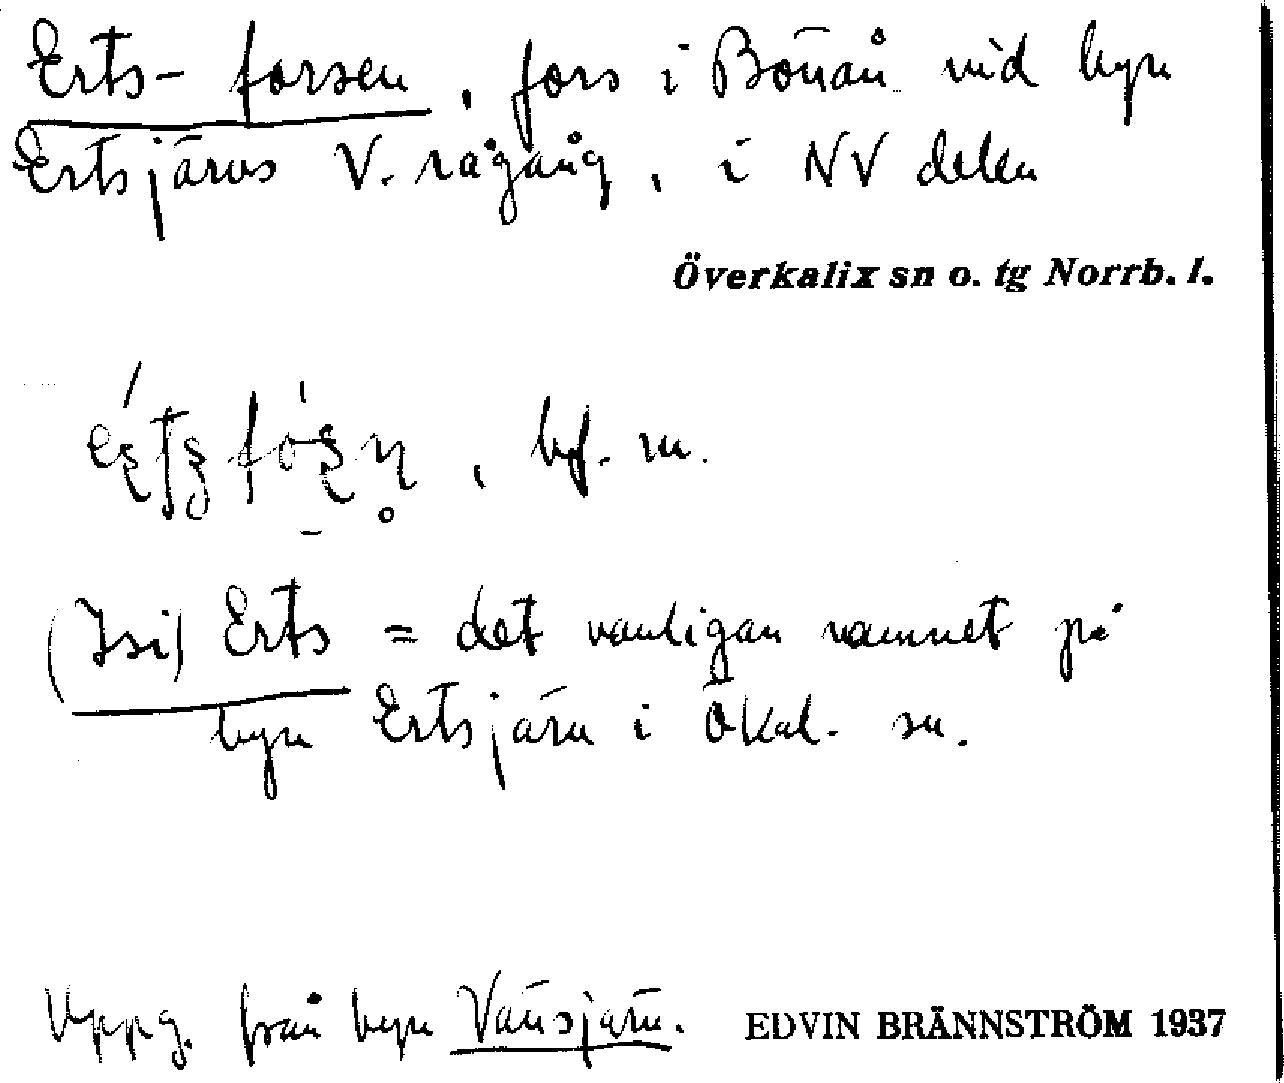 Erts-forsen, fors i Bönån vid byn
Ertsjärvs V. rågång, i NV delen
Överkalix sn o. tg Norrb. l.
, bf. m.
(Isi) Erts = det vanligan namnet på
byn Ertsjärv i Ökal. sn.
Uppg. från byn Vänsjärv.
EDVIN BRÄNNSTRÖM 1937